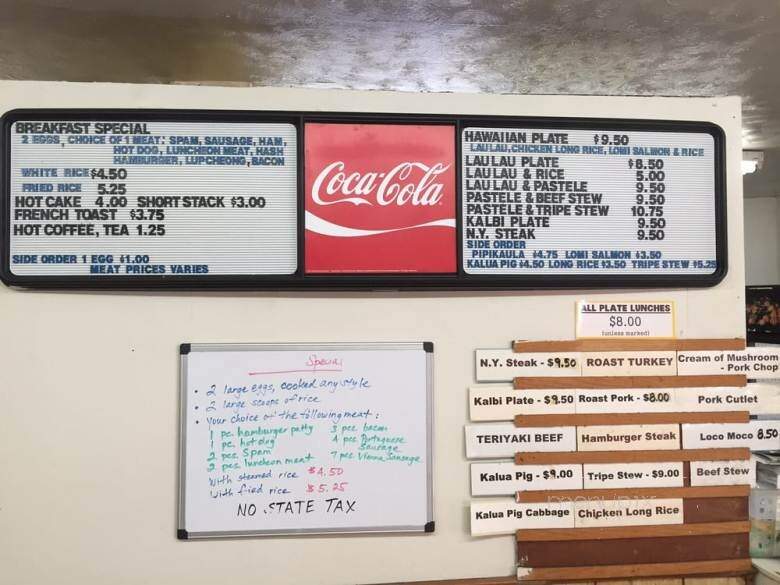 BREAKFAST SPECIAL
2 EGGS, CHOICE OF 1 MEAT: SPAM, SAUSAGE, HAM,
HOT DOG, LUNCHEON MEAT, HASH
HAMBURGER, LUPCHEONG, BACON
WHITE RICE $4.50
FRIED RICE 5.25
HOT CAKE 4.00 SHORT STACK $3.00
FRENCH TOAST $3.75
HOT COFFEE, TEA 1.25
SIDE ORDER 1 EGG $1.00
MEAT PRICES VARIES
Coca-Cola
HAWAIIAN PLATE $9.50
LAULAU, CHICKEN LONG RICE, LOMI SALMON & RICE
LAULAU PLATE $8.50
LAULAU & RICE 5.00
LAULAU & PASTELE 9.50
PASTELE & BEEF STEW 9.50
PASTELE & TRIPE STEW 10.75
KALBI PLATE 9.50
N.Y. STEAK 9.50
SIDE ORDER
PIPIKAULA $4.75 LOMI SALMON $3.50
KALUA PIG $4.50 LONG RICE $3.50 TRIPE STEW $5.25
ALL PLATE LUNCHES
$8.00
(unless marked)
Special
• 2 large eggs, cooked any style
• 2 large scoops of rice
• Your choice of the following meat:
1 pc. hamburger patty 3 pcs bacon
1 pc. hot dog 4 pcs Portuguese
Sausage
2 pcs Spam
2 pcs luncheon meat 7 pcs Vienna Sausage
With steamed rice $4.50
With fried rice $5.25
NO STATE TAX
N.Y. Steak - $9.50 ROAST TURKEY Cream of Mushroom
- Pork Chop
Kalbi Plate - $9.50 Roast Pork - $8.00 Pork Cutlet
TERIYAKI BEEF Hamburger Steak Loco Moco 8.50
Kalua Pig - $9.00 Tripe Stew - $9.00 Beef Stew
Kalua Pig Cabbage Chicken Long Rice